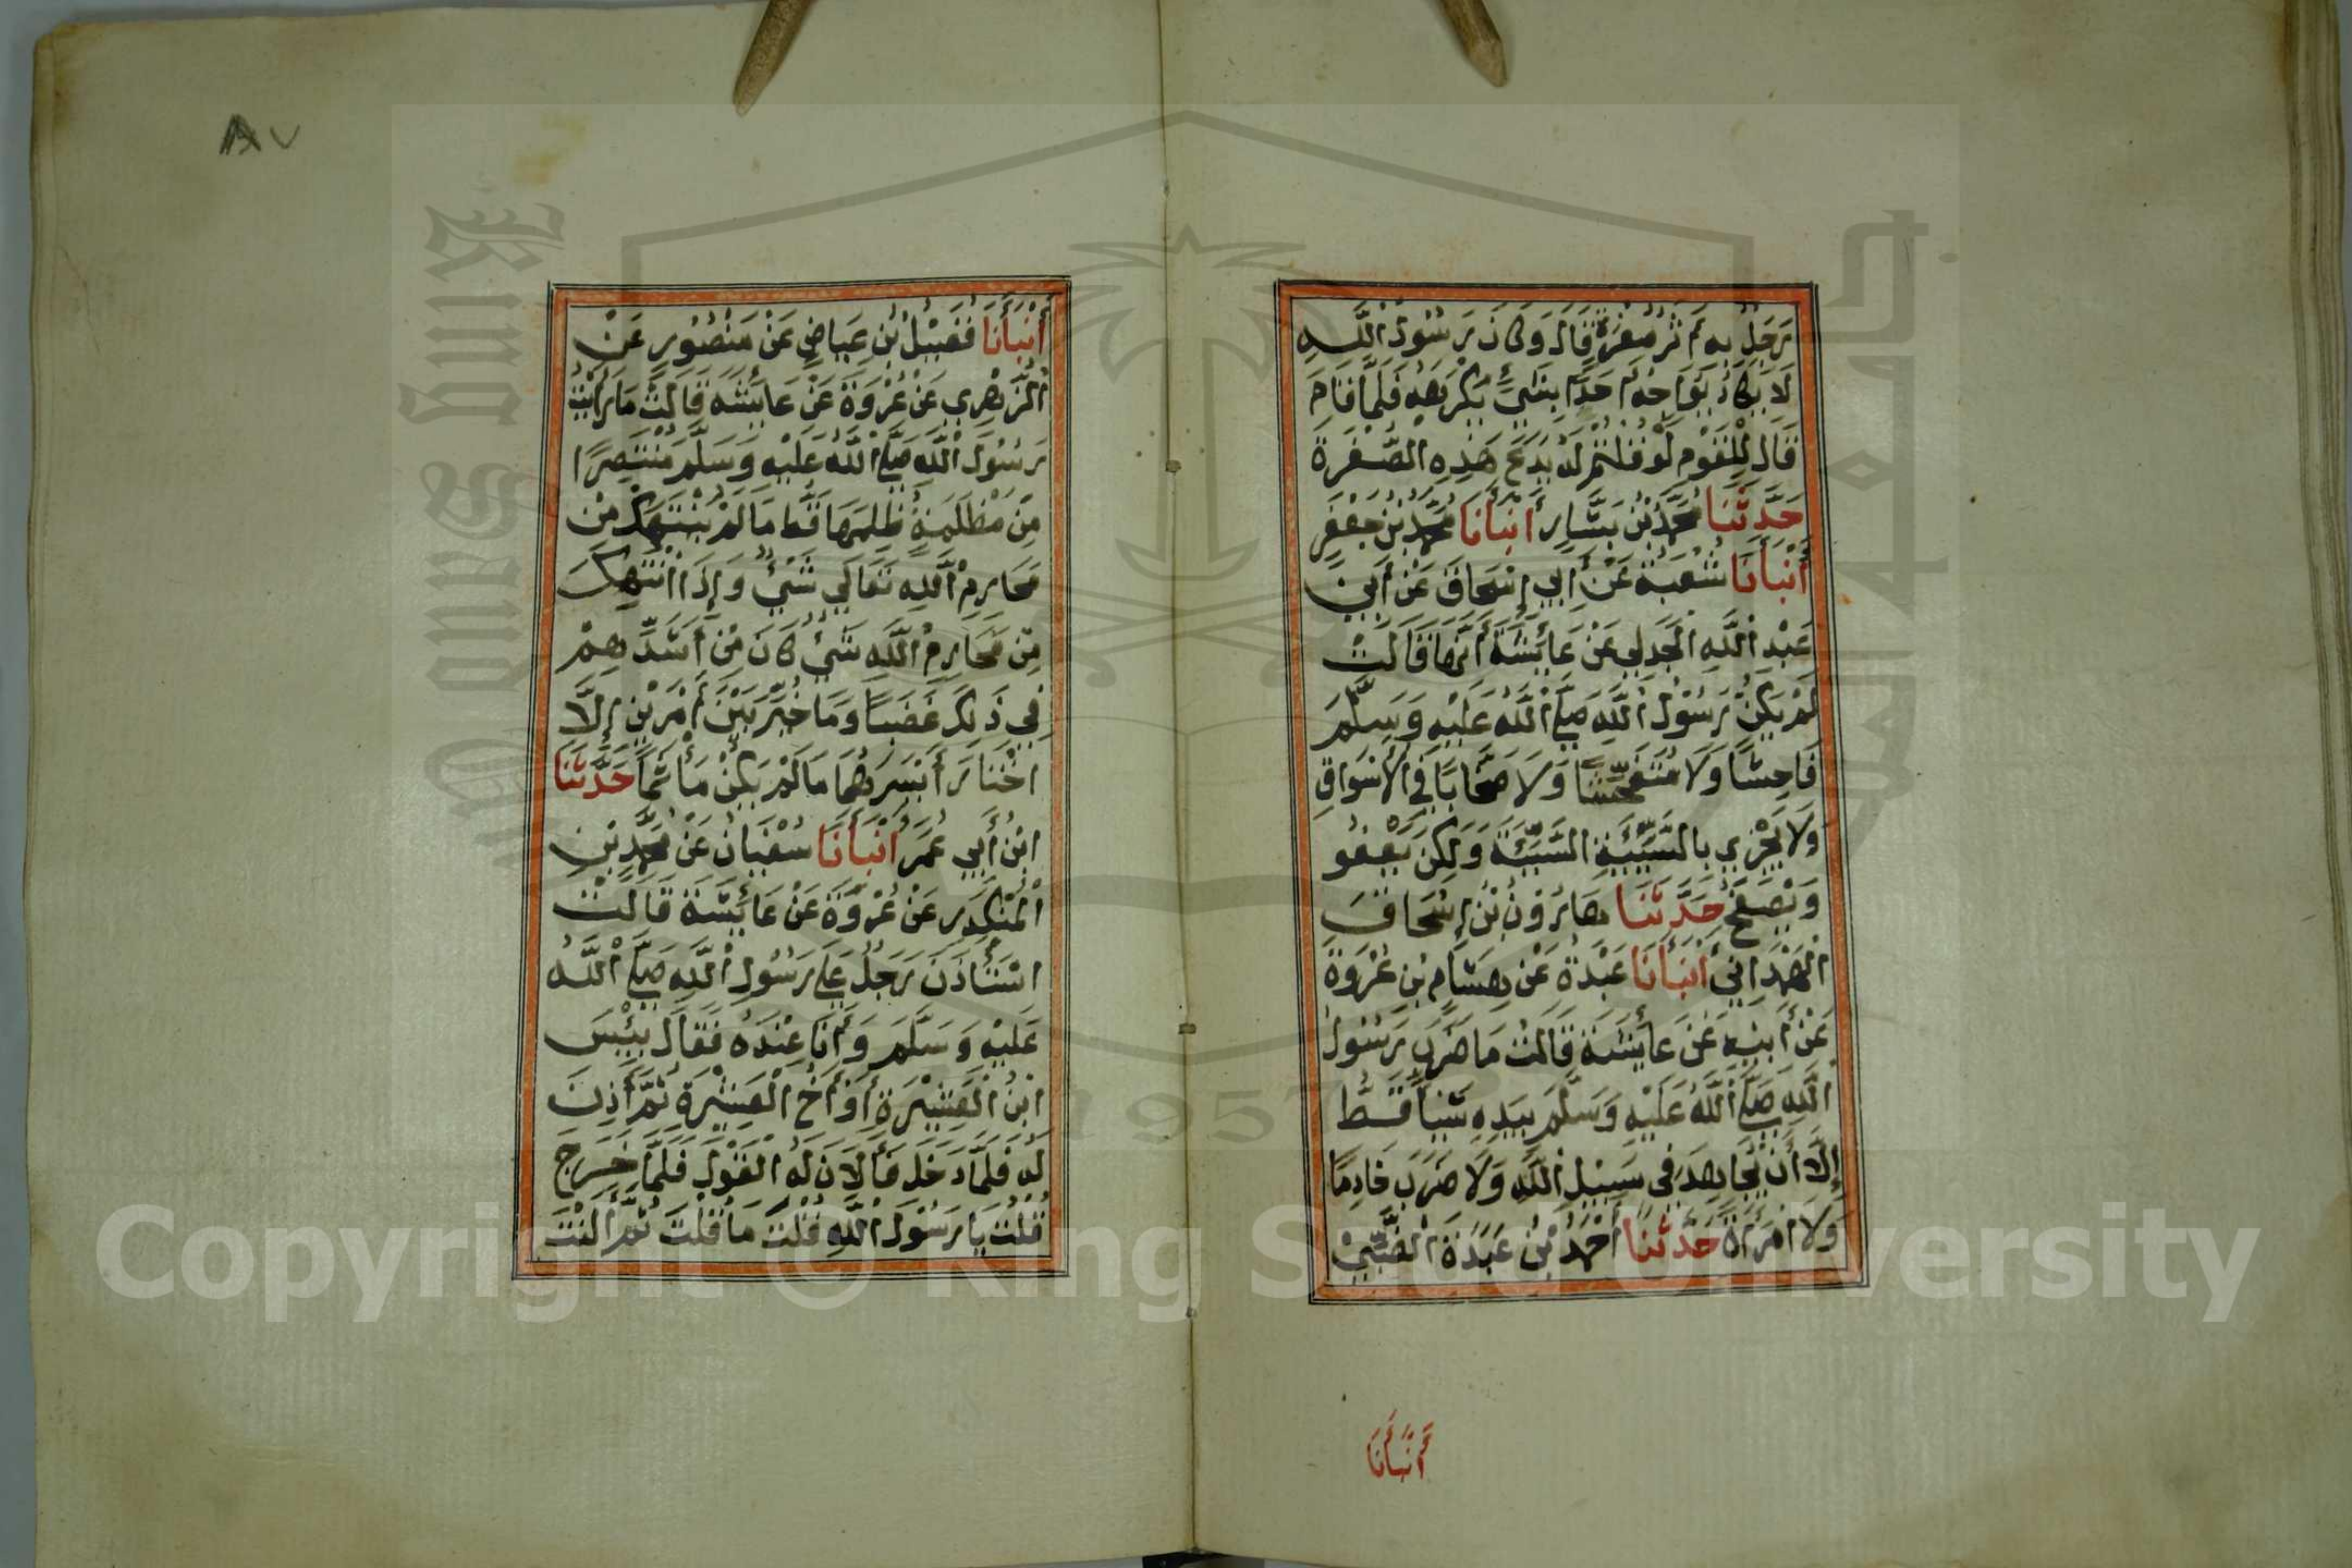 رَجُلٌ بِهِ أَثَرُ صُفْرَةٍ قَالَ وَكَانَ رَسُولُ اللَّهِ
لَا يَكَادُ يُوَاجِهُ أَحَدًا بِشَيْءٍ يَكْرَهُهُ فَلَمَّا قَامَ
قَالَ لِلْقَوْمِ لَوْ قُلْتُمْ لَهُ يَدَعُ هَذِهِ الصُّفْرَةَ
حَدَّثَنَا مُحَمَّدُ بْنُ بَشَّارٍ أَنْبَأَنَا مُحَمَّدُ بْنُ جَعْفَرٍ
أَنْبَأَنَا شُعْبَةُ عَنْ أَبِي إِسْحَاقَ عَنْ أَبِي
عَبْدِ اللَّهِ الْجَدَلِي عَنْ عَائِشَةَ أَنَّهَا قَالَتْ
لَمْ يَكُنْ رَسُولُ اللَّهِ صَلَّى اللَّهُ عَلَيْهِ وَسَلَّمَ
فَاحِشًا وَلَا مُتَفَحِّشًا وَلَا صَخَّابًا فِي الْأَسْوَاقِ
وَلَا يَجْزِي بِالسَّيِّئَةِ السَّيِّئَةَ وَلَكِنْ يَعْفُو
وَيَصْفَحُ حَدَّثَنَا هَارُونُ بْنُ إِسْحَاقَ
الْهَمْدَانِي أَنْبَأَنَا عَبْدَةُ عَنْ هِشَامِ بْنِ عُرْوَةَ
عَنْ أَبِيهِ عَنْ عَائِشَةَ قَالَتْ مَا ضَرَبَ رَسُولُ
اللَّهِ صَلَّى اللَّهُ عَلَيْهِ وَسَلَّمَ بِيَدِهِ شَيْئًا قَطُّ
إِلَّا أَنْ يُجَاهِدَ فِي سَبِيلِ اللَّهِ وَلَا ضَرَبَ خَادِمًا
وَلَا امْرَأَةً حَدَّثَنَا أَحْمَدُ بْنُ عَبْدَةَ الضَّبِّيُّ
أَنْبَأَنَا
٨٧
أَنْبَأَنَا فُضَيْلُ بْنُ عِيَاضٍ عَنْ مَنْصُورٍ عَنْ
الزُّهْرِي عَنْ عُرْوَةَ عَنْ عَائِشَةَ قَالَتْ مَا رَأَيْتُ
رَسُولَ اللَّهِ صَلَّى اللَّهُ عَلَيْهِ وَسَلَّمَ مُنْتَصِرًا
مِنْ مَظْلَمَةٍ ظُلِمَهَا قَطُّ مَا لَمْ يُنْتَهَكْ مِنْ
مَحَارِمِ اللَّهِ تَعَالَى شَيْءٌ وَإِذَا انْتُهِكَ
مِنْ مَحَارِمِ اللَّهِ شَيْءٌ كَانَ مِنْ أَشَدِّهِمْ
فِي ذَلِكَ غَضَبًا وَمَا خُيِّرَ بَيْنَ أَمْرَيْنِ إِلَّا
اخْتَارَ أَيْسَرَهُمَا مَا لَمْ يَكُنْ مَأْثَمًا حَدَّثَنَا
ابْنُ أَبِي عُمَرَ أَنْبَأَنَا سُفْيَانُ عَنْ مُحَمَّدِ بْنِ
الْمُنْكَدِرِ عَنْ عُرْوَةَ عَنْ عَائِشَةَ قَالَتْ
اسْتَأْذَنَ رَجُلٌ عَلَى رَسُولِ اللَّهِ صَلَّى اللَّهُ
عَلَيْهِ وَسَلَّمَ وَأَنَا عِنْدَهُ فَقَالَ بِئْسَ
ابْنُ الْعَشِيرَةِ أَوْ أَخُ الْعَشِيرَةِ ثُمَّ أَذِنَ
لَهُ فَلَمَّا دَخَلَ فَأَلَانَ لَهُ الْقَوْلَ فَلَمَّا خَرَجَ
قُلْتُ يَا رَسُولَ اللَّهِ قُلْتَ مَا قُلْتَ ثُمَّ أَلَنْتَ
King Saud University
1957
Copyright © King Saud University